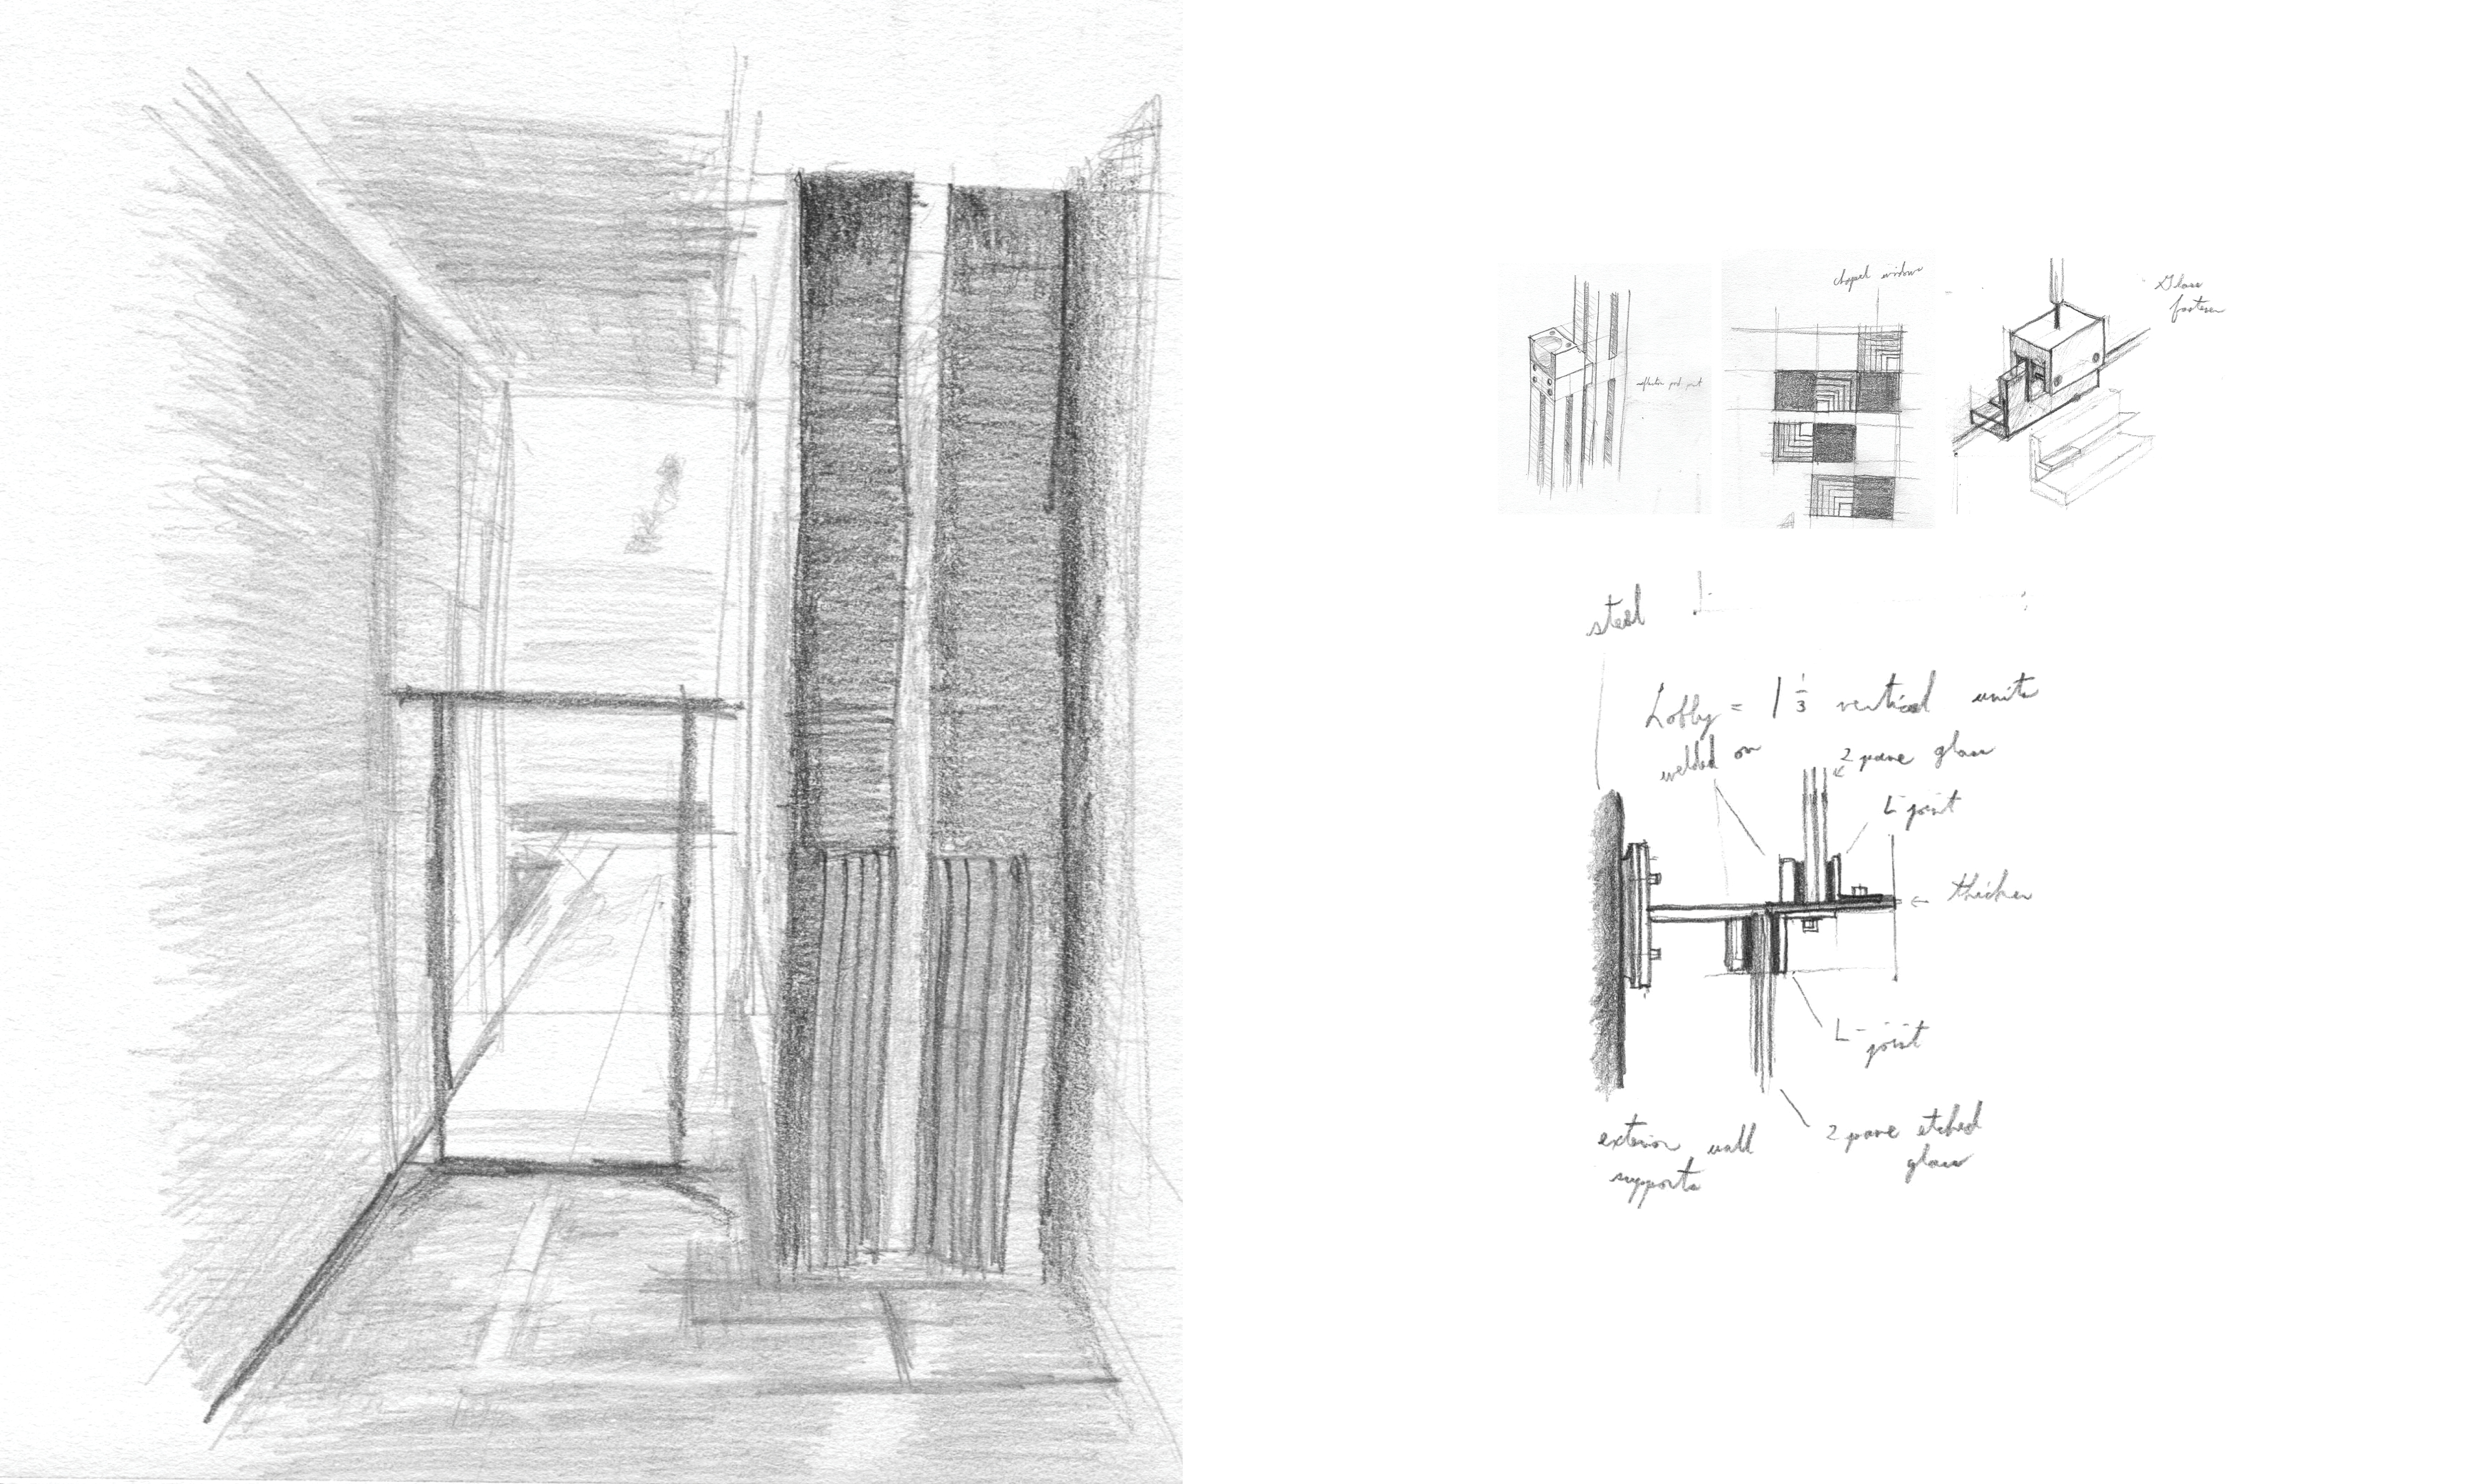 chapel windows
Glass
fastener
steel
Lobby = 1 1/3 vertical units
welded on
2 pane glass
L-joint
← thicker
L-joint
exterior wall
supports
2 pane etched
glass